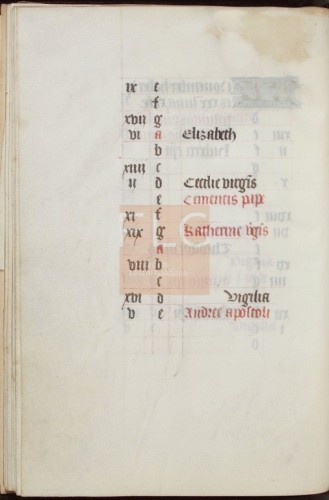 ix e
f
xvii g
vi a Elizabeth
b
xiiii c
ii d Cecilie virgis
e Clementis
xi f
xix g Katherine vgis
a
viii b
c
xvi d Vigilia
v e Andree apostoli